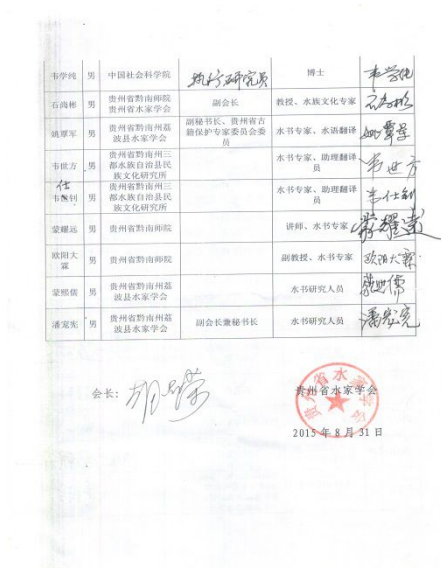 韦学纯 男 中国社会科学院 助理研究员 博士 韦学纯
石尚彬 男 贵州省黔南师院 贵州省水家学会 副会长 教授、水族文化专家 石尚彬
姚覃军 男 贵州省黔南州荔波县水家学会 副秘书长、贵州省古籍保护专家委员会委员 水书专家、水语翻译 姚覃军
韦世方 男 贵州省黔南州三都水族自治县民族文化研究所 水书专家、助理翻译员 韦世方
仕
韦 钊 男 贵州省黔南州三都水族自治县民族文化研究所 水书专家、助理翻译员 韦仕钊
蒙耀远 男 贵州省黔南师院 讲师、水书专家 蒙耀远
欧阳大霖 男 贵州省黔南师院 副教授、水书专家 欧阳大霖
蒙熙儒 男 贵州省黔南州荔波县水家学会 水书研究人员 蒙熙儒
潘宠宪 男 贵州省黔南州荔波县水家学会 副会长兼秘书长 水书研究人员
会长：
贵州省水家学会
贵州省水家学会
2015 年 8 月 31 日